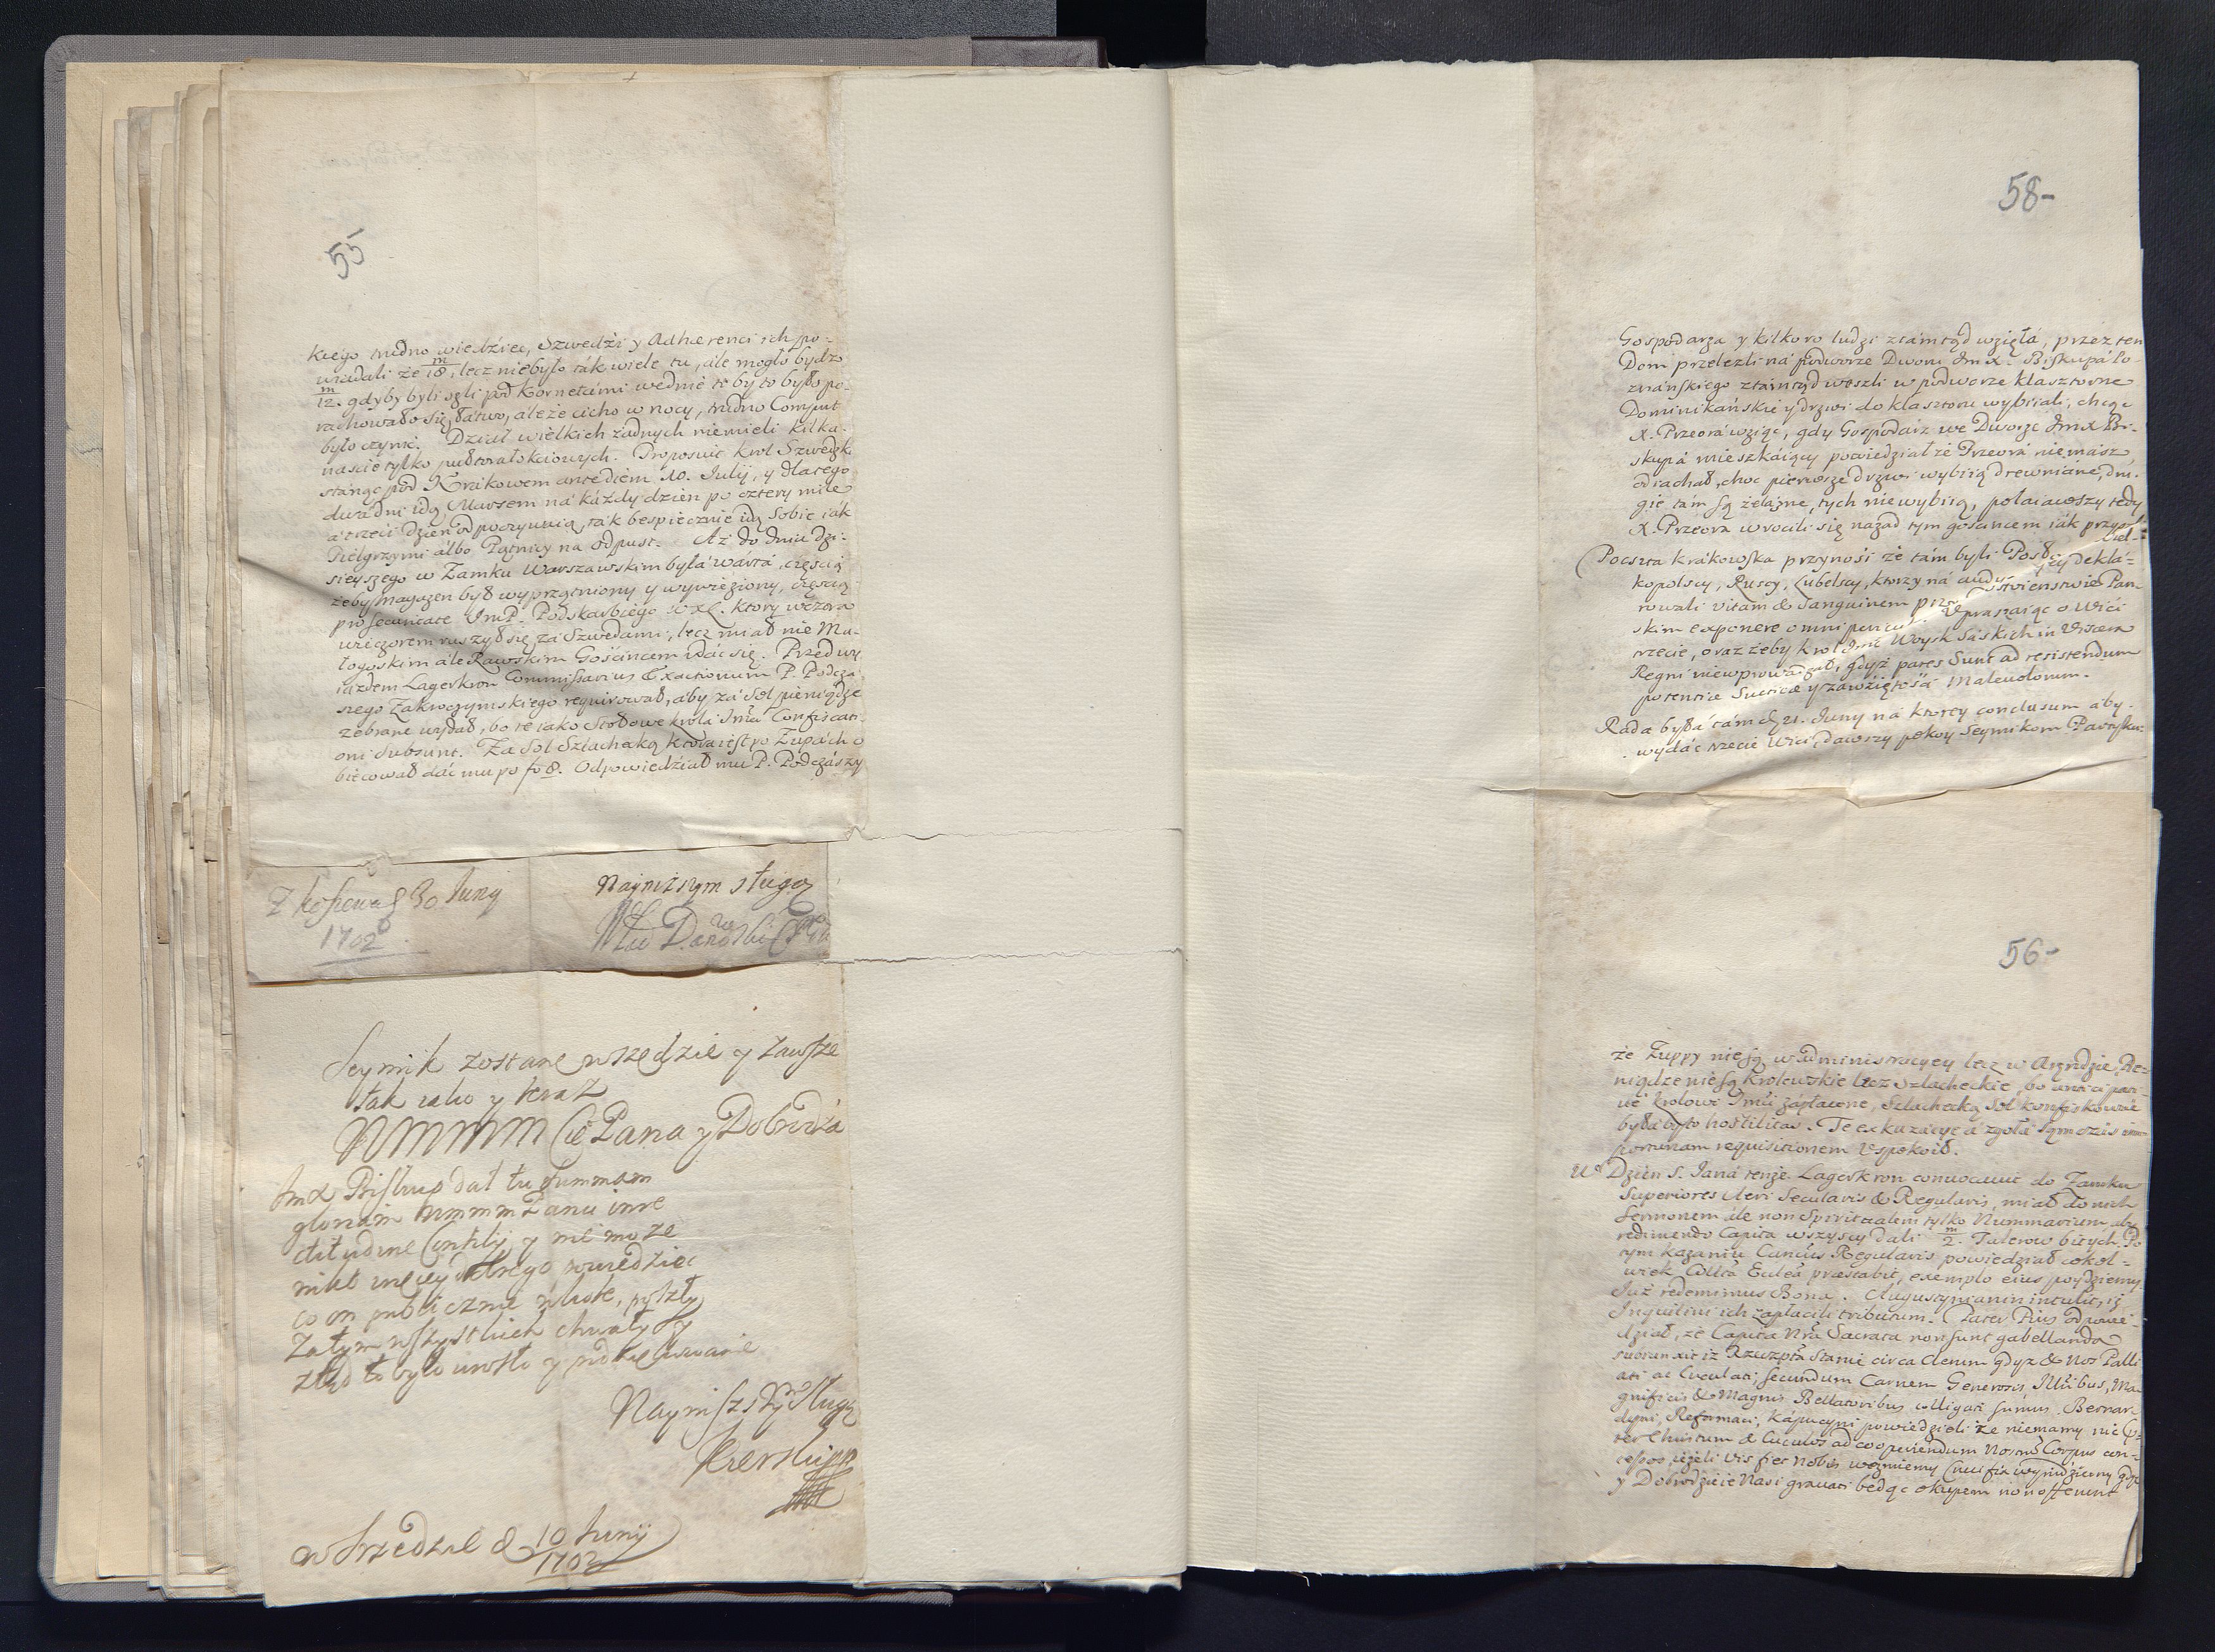 55
kiego trudno wiedziec, Szwedzi y Adhaerenci ich po-
wiadali że 18/m, lecz niebyło ták wiele tu, ále mogło bydz
12/m. gdyby byli szli pod Kornetámi wednie to by to było po-
rachowało się łatwo, ale że cicho w nocy, trudno Comput
było czynić. Dział wielkich żadnych niemieli kilka-
naście tylko pułtorałokciowych. Proposuit Krol Szwedzk
stánąc pod Krákowem ante diem 10. Julij, y dlatego
dwa dni idą Marsem ná káżdy dzien po cztery mile
á trzeci dzien odpoczywáią, ták bespiecznie idą sobie iák
Pielgrzymi álbo Pątnicy na odpust. Aż do dnia dzi-
sieyszego w Zamku Warszawskim byłá wártá, częscią
żeby magazen był wyprzątniony y wywieziony, częscią
pro securitate ImP. Podskarbiego WXL. ktory wczora
wieczorem ruszył się zá Szwedami, lecz miał nie Ma-
łogoskim ále Rawskim Gościncem udác się. Przed wy
iazdem Lagerkron Commissarius Exactionum P. Podcza
szego Zakroczymskiego requirował, áby zá Sol pieniądze
zebrane wydał, bo te iako Stołowe krola Imci Confiscati
oni subsunt. Za Sol Szlachecką ktora iest po Żupách o
biecował dác mu po fo 8. Odpowiedział mu P. Podczászy
Z d 30 Juny
1702
Nayniższym sługą
Seymik zostane wszędzie y zawsze
tak iako y teraz
WMMM Cie Pana y Dobrodza
Im X Biskup dał tu summam
gloriam WmmmPanu inre
ctitudine Consilij y nie moze
nikt więcey dobrego powiedziec
co on publicznie
Zatym wszystkich chwały y
ztąd to było urosło y
Nayniszszy Sługa
w Srzedzie d 10 Junij
1702
58-
Gospodarza y kilkoro ludzi ztámtąd wzięłá, przez ten
Dom przelezli ná podworze Dworu Im X. Biskupá Po-
znáńskiego ztámtąd weszli w podworze klasztorne
Dominikáńskie y drzwi do klasztoru wybiiali, chcąc
X. Przeorá wziąc, gdy Gospodarz we Dworze ImX Bi-
skupá mieszkáiący powiedział że Przeorá niemász
odiachał, choc pierwsze drzwi wybiią drewniáne, dru-
gie tám są żelázne, tych niewybiią, połaiawszy tedy
X. Przeora wrocili się nazad tym gościncem iák przyszli
Poczta krakowska przynosi że tám byli Posł Wiel-
kopolscy, Ruscy, Lubelscy, ktorzy ná dekla-
rowali vitam & Sanguinem Pan-
skim exponere omni upraszaiąc o Wici
trzecie, oraz żeby Krol Imć Woysk Saskich in Viscera
Regni niewprowadzał, gdyż pares sunt ad resistendum
potentiae Sueticae y zawziętośći Malevolorum.
Rada byłá tám d 21. Juny ná ktorey conclusum aby
wydác trzecie Wici, dawszy pokoy Seymikom Partyku-
56-
że Zuppy nie są w administracyey lecz w Arędzie, Pie-
niądze nie są Krolewskie lecz Szlacheckie, bo antici pati
ve Krolowi Imći zápłacone, Szlachecką Sol konfiskowác
byłá by to hostilitas. Te exkuzacye á zgołá sąm czás im-
portunam requisitionem Uspokoił.
W Dzień S. Janá tenże Lagerkron convocavit do Zamku
Superiores Cleri Secularis & Regularis, miał do nich
Sermonem ále non Spiritualem tylko Nummarium, aby
redimendo Capita wszyscy dali 2/m. Talerow bitych, Po
tym kazaniu Cunctus Regularis powiedział cokol-
wiek Collta Ecclea praestabit, exemplo eius poydziemy
Już redemimus Bona. Augustynianin intulit, iż
Inquilini ich zapłacili tributum. Pater Pius odpowie-
dział, że Capita Nra Sacrata non sunt gabellanda
subiunxit iż Rzeczpta Stanu circa Clerum gdyz & Nos Palli
ati ac Cuculati, secundum Carnem Generosis, Illribus, Ma
gnificis & Magnis Bellatoribus colligati sumus, Bernar-
dyni, Reformaci, Kápucyni powiedzieli że niemamy nic p̃-
ter Christum & Cuculos ad cooperiendum Nostrũ Corpus con-
cessos, ieżeli vis fiet nobis wezmiemy Crucifix wynidziemy gdyż
y Dobrodzieie Nasi gravati będąc okupem non offerunt